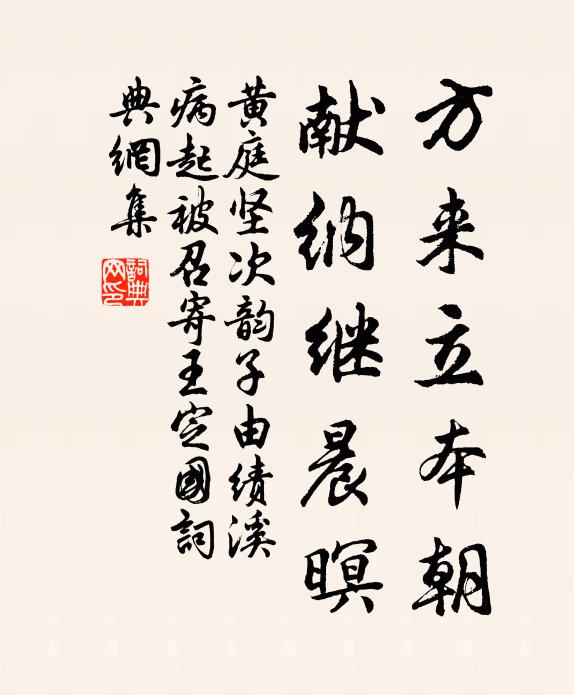 方来立本朝
献纳继晨暝
黄庭坚次韵子由绩溪
病起被召寄王定國詞
典網集
詞典
网印